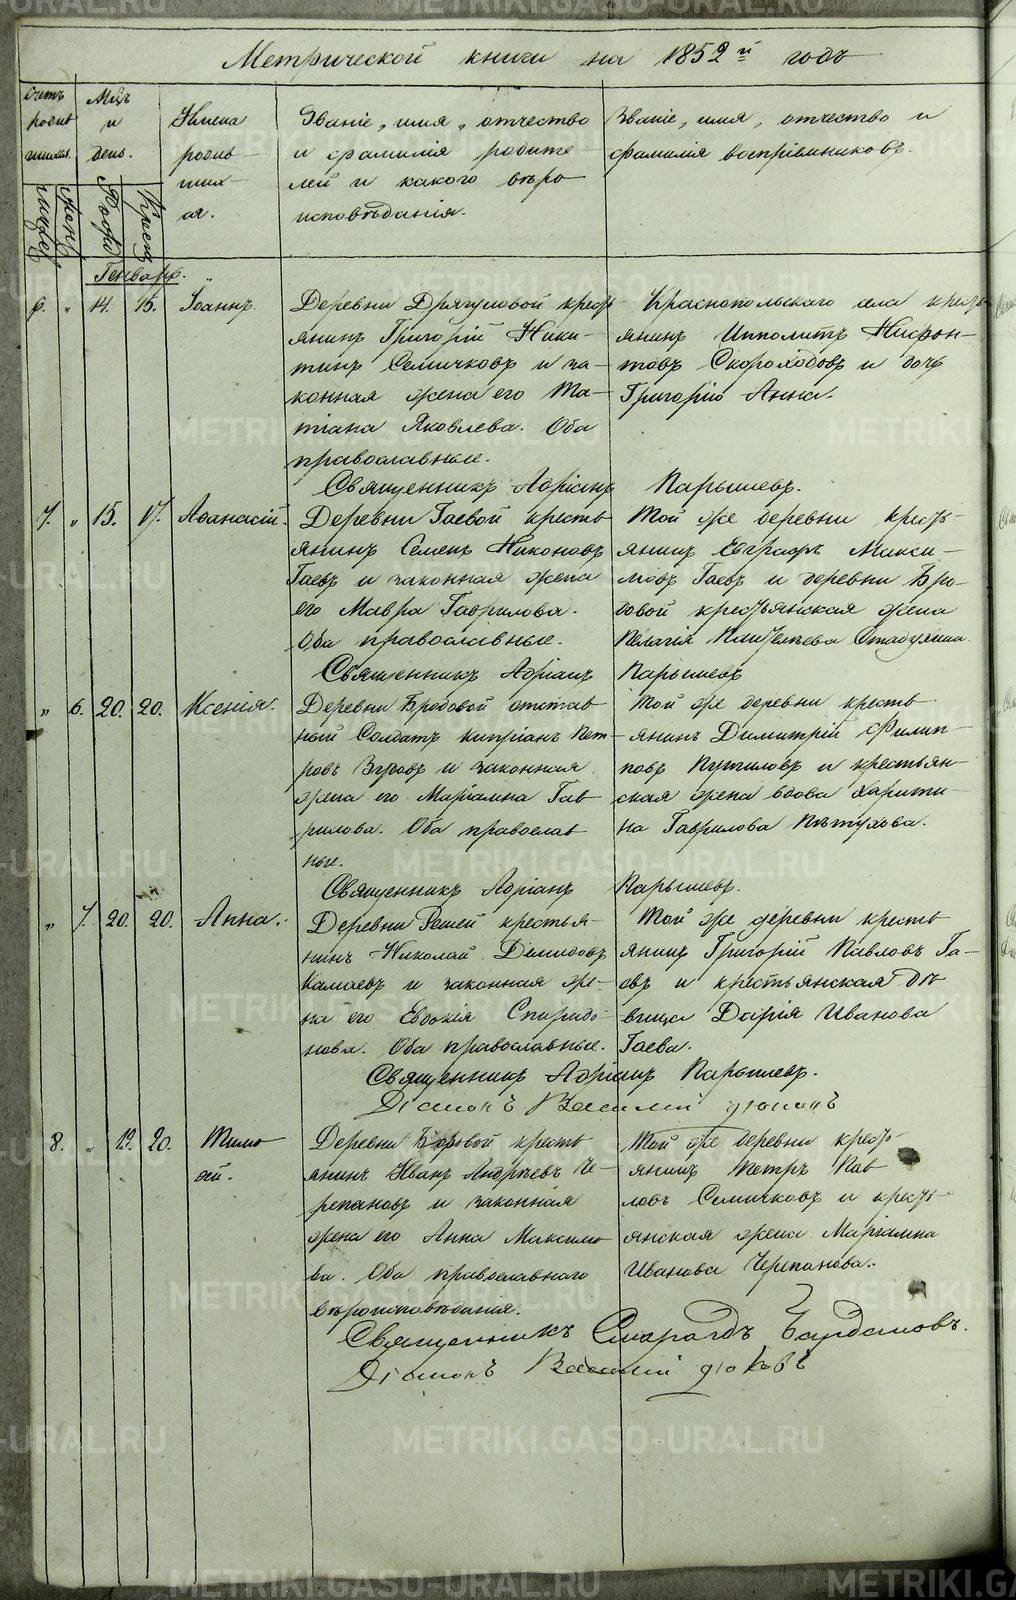 Метрической книги на 1852й годъ
Счетъ родив шихся.
Мсцъ и день.
Имена родив шихся.
Званіе, имя, отчество и фамилія родителей и какого вѣроисповѣданія.
Званіе, имя, отчество и фамилія воспріемниковъ.
Рожд Крещ
Генварь.
6. " 14. 15. Іоаннъ.
Деревни Дрягуловой крестьянинъ Григорій Ники-
тинъ Семичковъ и за-
конная жена его Та-
тіана Яковлева. Оба
православные.
Краснопольскаго села кресть-
янинъ Ипполитъ Нифон-
товъ Скороходовъ и дочь
Григорія Анна.
Священникъ Адріанъ Парышевъ.
7. " 15. 17. Аѳанасій.
Деревни Гаевой кресть
янинъ Семенъ Никоновъ
Гаевъ и законная жена
его Мавра Гаврилова.
Оба православные.
Той же деревни кресть-
янинъ Евграфъ Макси-
мовъ Гаевъ и деревни Бро-
довой крестьянская жена
Пелагія
Священникъ Адріанъ Парышевъ
" 6. 20. 20. Ксенія.
Деревни Бродовой отстав
ный Солдатъ Кипріанъ Пет-
ровъ и законная
жена его Маріамна Гав
рилова. Оба православ
ные.
Той же деревни кресть
янинъ Димитрій Филип-
повъ Путиловъ и крестьян-
ская жена вдова Харити-
на Гаврилова Пѣтухова.
Священникъ Адріанъ Парышевъ.
" 7. 20. 20. Анна.
Деревни крестья-
нинъ Николай Демидовъ
Камаевъ и законная же-
на его Евдокія Спиридо-
нова. Оба православные.
Той же деревни кресть
янинъ Григорій Павловъ Га-
евъ и крестьянская дѣ
вица Дарія Иванова
Гаева.
Священникъ Адріанъ Парышевъ.
Діаконъ Василій
8. " 19. 20. Тимо
ѳей.
Деревни Боровой кресть
янинъ Иванъ Андреевъ Че-
репановъ и законная
жена его Анна Максимо
ва. Оба православнаго
вѣроисповѣданія.
Той же деревни кресть-
янинъ Петръ Пав
ловъ Семичковъ и кресть-
янская жена Маріамна
Иванова Черепанова.
Священникъ Смарагдъ
Діаконъ Василій
METRIKI.GASO-URAL.RU